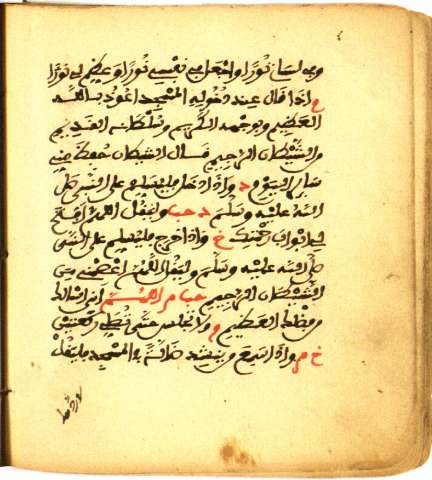 وفي لساني نورا واجعل في نفسي نورا وعظم لي نورا
م واذا قال عند دخوله المسجد اعوذ بالله
العظيم وبوجهه الكريم وسلطانه القديم
من الشيطان الرجيم قال الشيطان حفظ مني
سائر اليوم د واذا دخل فليسلم على النبي صلى
الله عليه وسلم د حب وليقل اللهم افتح
لي ابواب رحمتك خ واذا خرج فليسلم على النبي
صلى الله عليه وسلم وليقل اللهم اعصمني من
الشيطان الرجيم حب م اللهم اني اسالك
من فضلك العظيم م ولا يجلس حتى يصلي ركعتين
خ م واذا سمع من ينشد ضالة في المسجد فليقل
لا ردها